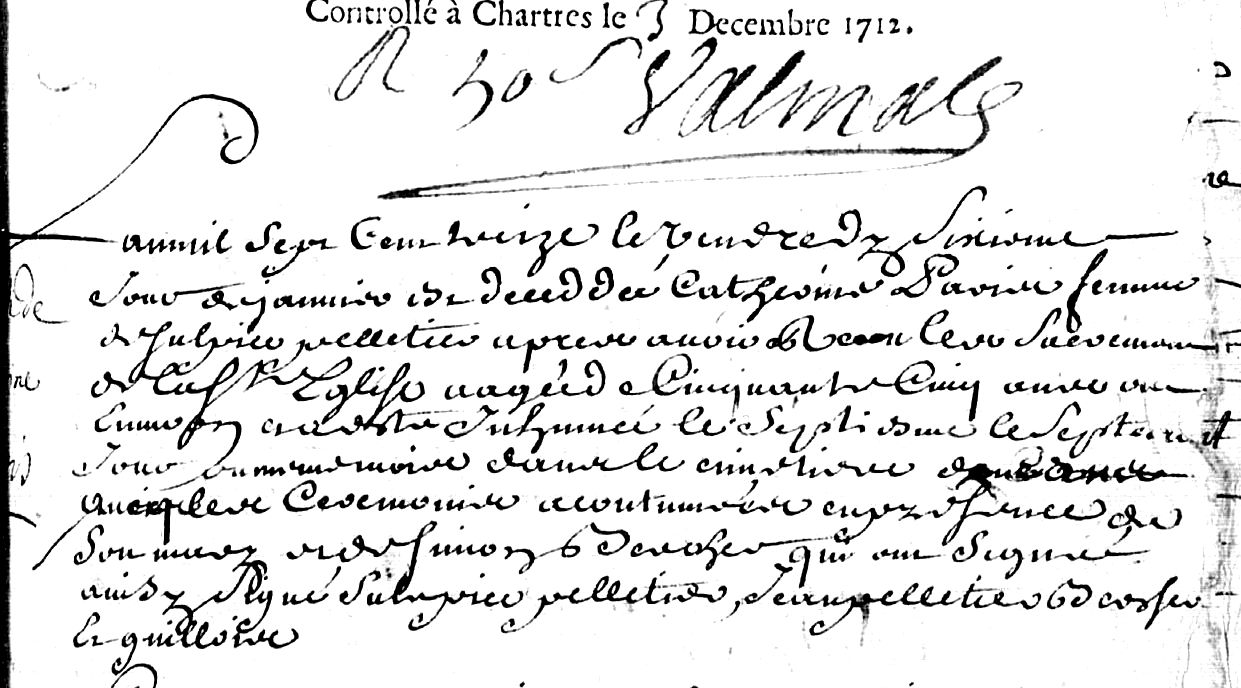 Controllé à Chartres le 3 Decembre 1712.
R 50s Valmale
anmil Sept Cent treize le vendredy Sixieme
Jour de janvier est deceddée Catherine Pavie femme
de Sulpice pelletier apres avoir les Sacremens
de la Ste Eglise aagée de Cinquante Cinq ans ou
Environ et a este Inhumée le Septiesme le Septieme
Jour mesme mois dans le cimetiere
avec les Ceremonies acoutumées en presence de
Son mary et de Simon qui ont Signé
ainsy Signé Sulpice pelletier, Jean pelletier
Et guilloire